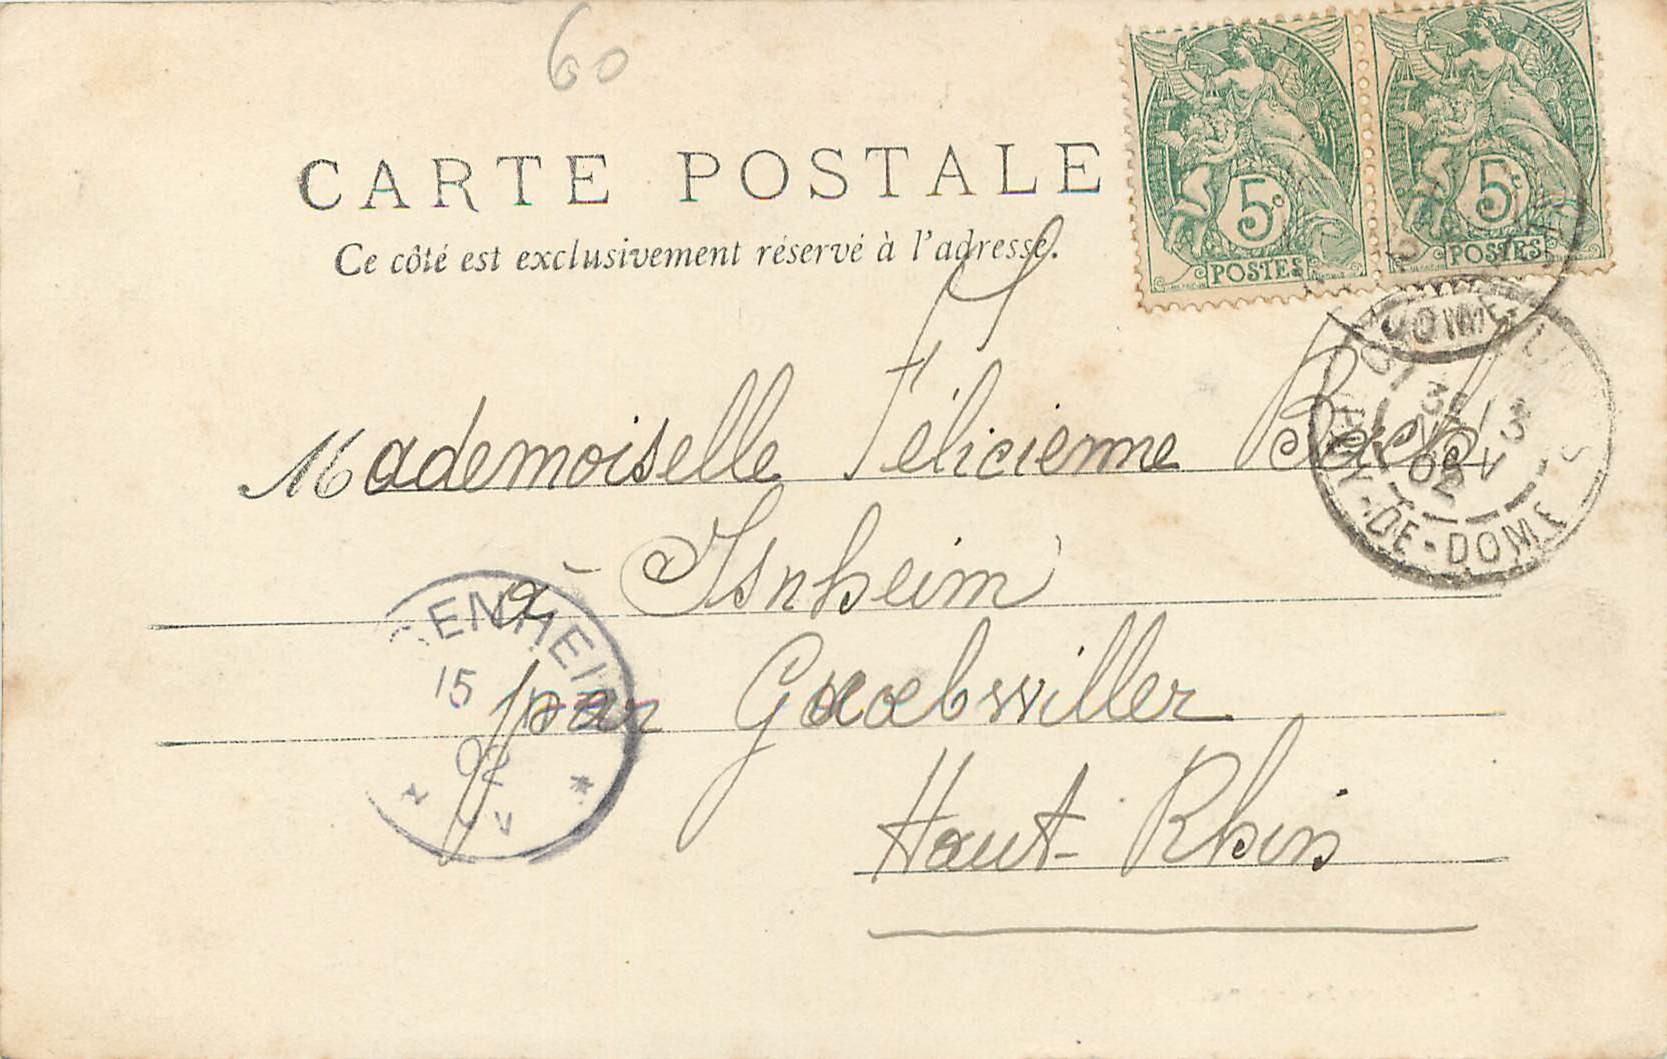 60
CARTE POSTALE
Ce côté est exclusivement réservé à l'adresse.
5c
POSTES
5c
POSTES
Mademoiselle Félicienne Bach
à Isnheim
par Guebwiller
Haut-Rhin
PUY-DE-DOME
02
ENHEIM
15
02